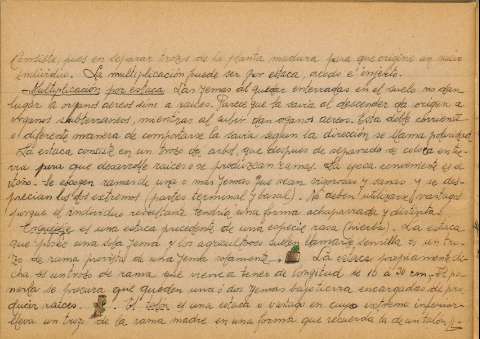 Consiste, pues en separar trozos de la planta madura para que origine un nuevo
individuo. La multiplicación puede ser por estaca, acodo e injerto.
-Multiplicacion por estaca: Las yemas al quedar enterradas en el suelo no dan
lugar a organos aereos sino a raices. Parece que la savia al descender da origen a
organos subterraneos, mientras al subir dan organos aereos. Esta doble corriente
el diferente manera de comportarse la savia segun la dirección se llama polaridad.
La estaca consiste en un trozo de arbol, que despues de separado se coloca en tie-
rra para que desarrolle raices o se produzcan ramas. La epoca conveniente es el
otoño. Se escogen ramas de uno o más yemas que sean vigorosas y sanas y se des-
precian los dos extremos (partes terminal y basal). No deben utilizarse vastagos
porque el individuo resultante tendria una forma achaparrada y distinta.
es una estaca procedente de una especie rara (hierba). La estaca
que posee una sola yema y los agricultores suelen llamarla semilla es un tro-
zo de rama provista de una yema solamente. La estaca propiamente di-
cha es un trozo de rama que viene a tener de longitud se 16 a 20 cm. Se po-
ne se procura que queden una ó dos yemas bajo tierra encargadas de pro-
ducir raices. El talon es una estaca o vastago en cuyo extremo inferior
lleva un trozo de la rama madre en una forma que recuerda la de un talón